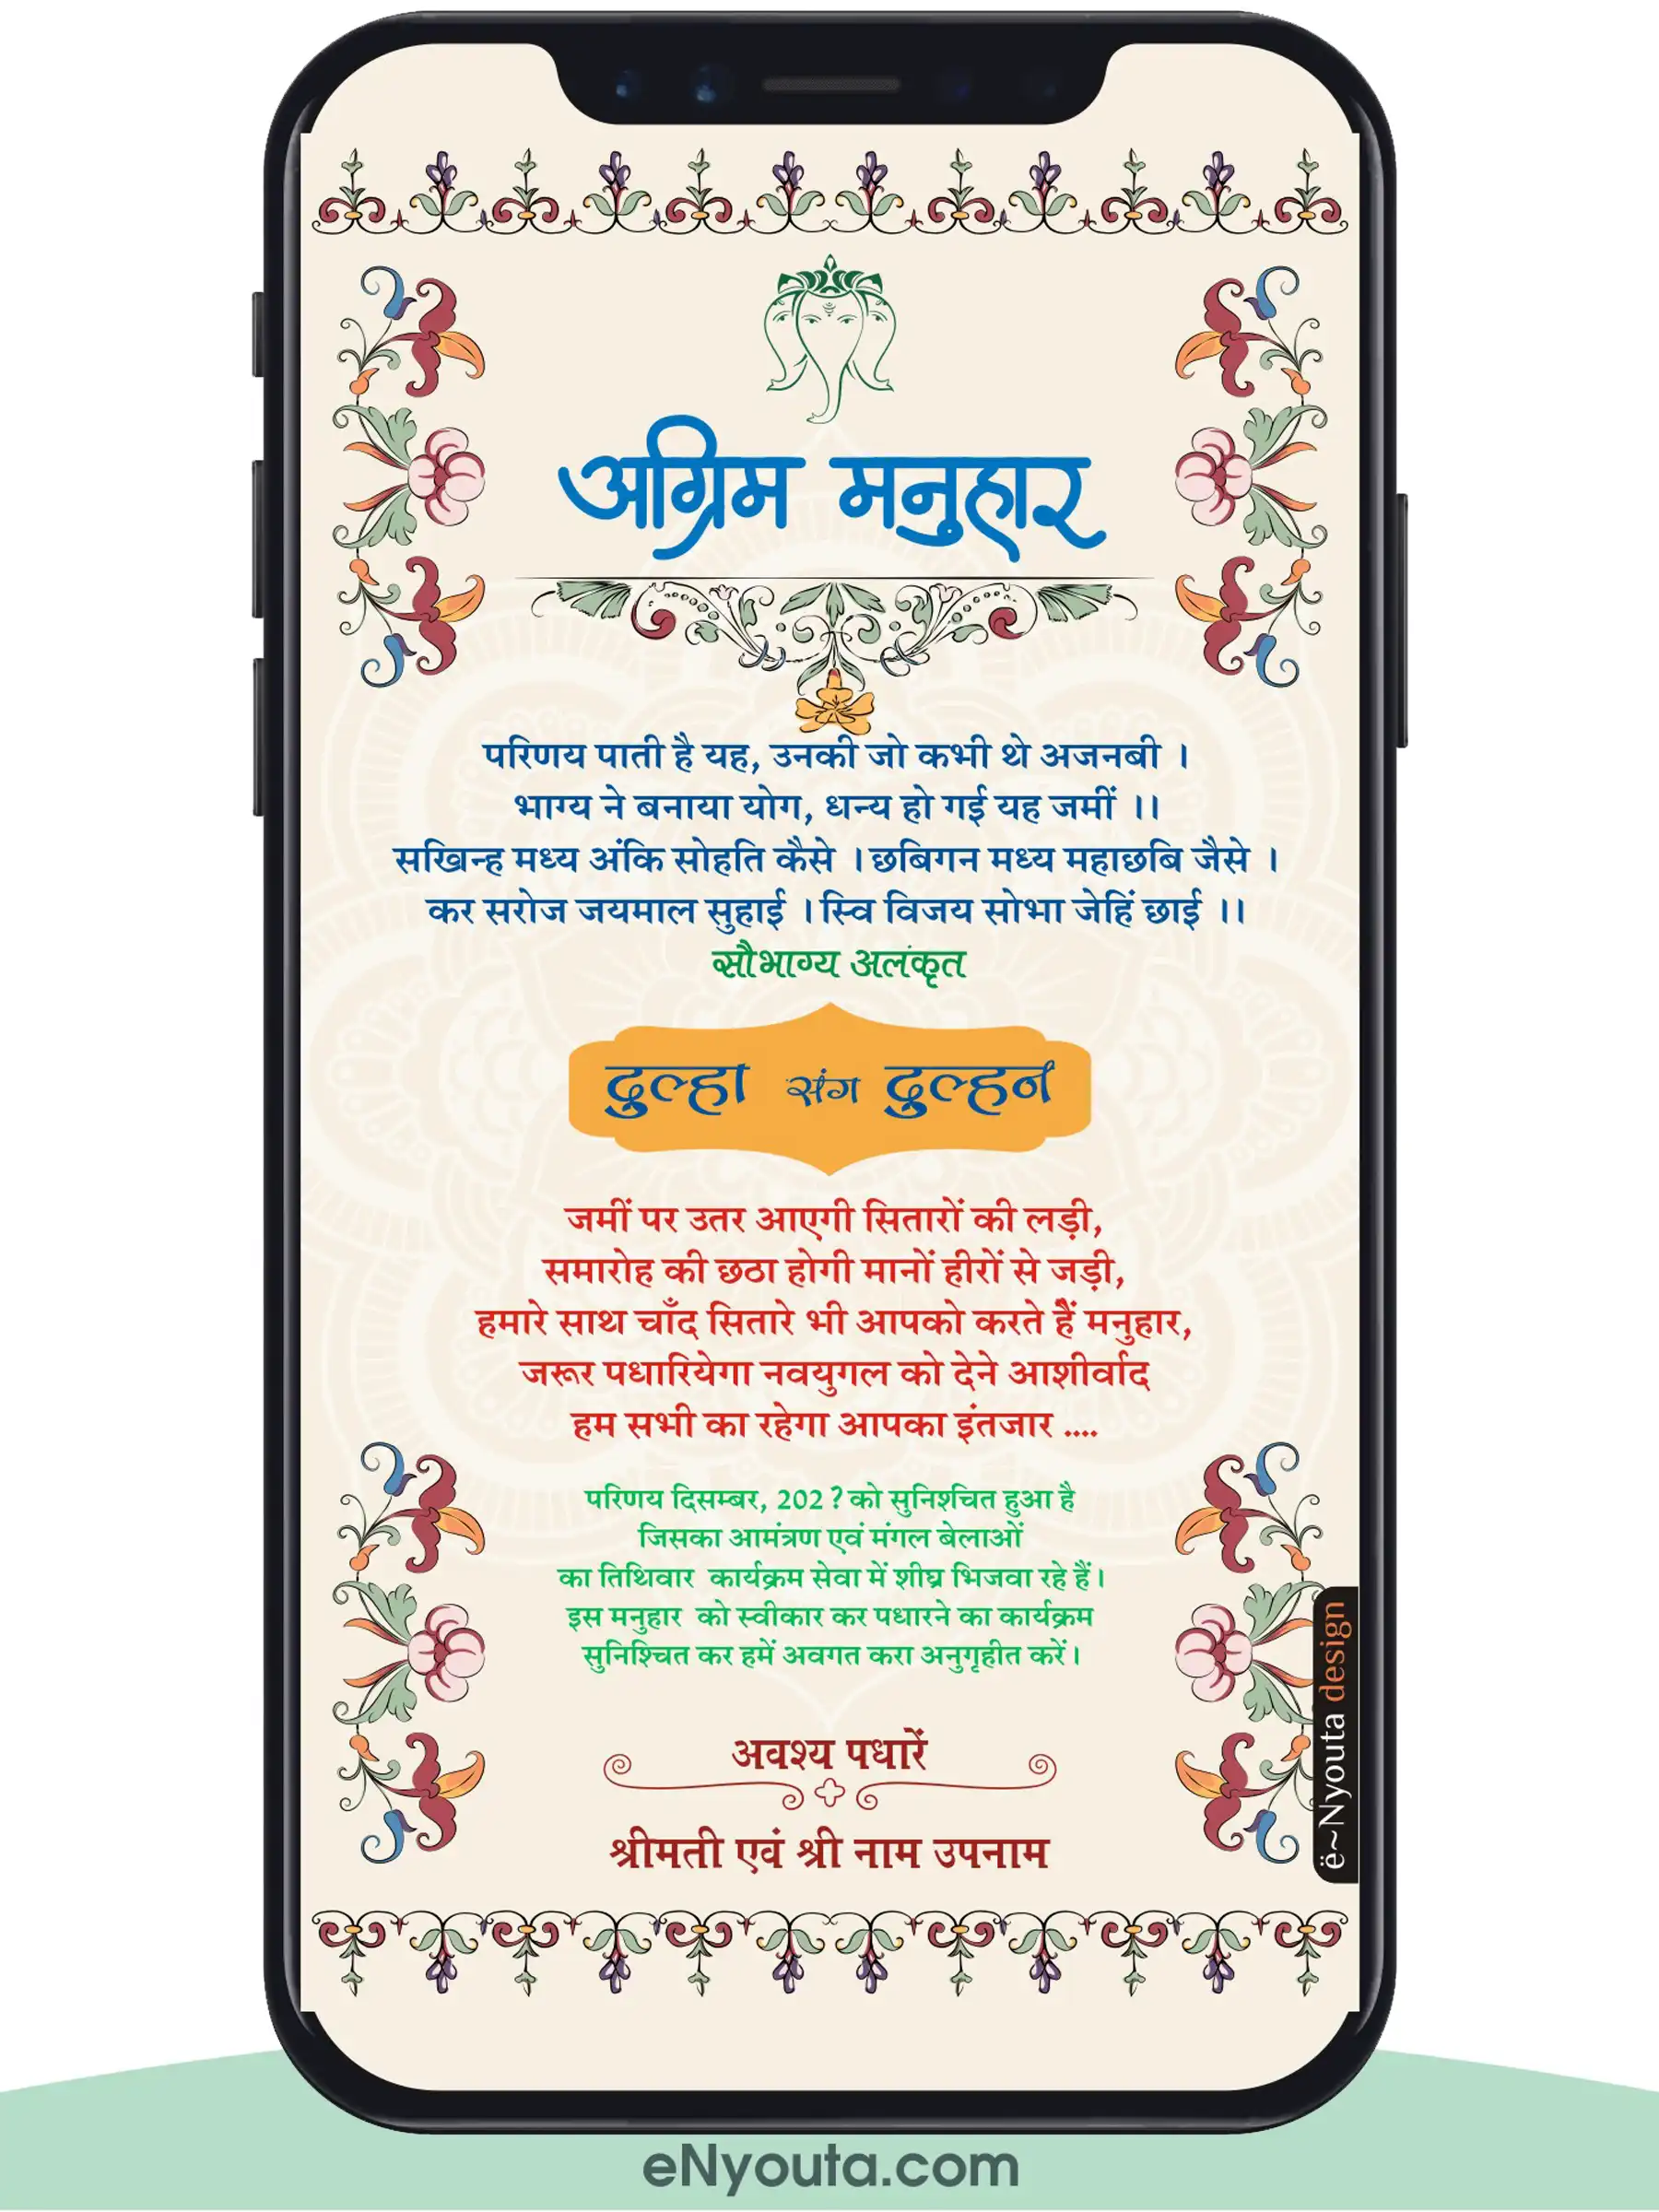 अग्रिम मनुहार
परिणय पाती है यह, उनकी जो कभी थे अजनबी ।
भाग्य ने बनाया योग, धन्य हो गई यह जमीं ।।
सखिन्ह मध्य अंकि सोहति कैसे । छबिगन मध्य महाछबि जैसे ।
कर सरोज जयमाल सुहाई । स्वि विजय सोभा जेहिं छाई ।।
सौभाग्य अलंकृत
दुल्हा संग दुल्हन
जमीं पर उतर आएगी सितारों की लड़ी,
समारोह की छठा होगी मानों हीरों से जड़ी,
हमारे साथ चाँद सितारे भी आपको करते हैं मनुहार,
जरूर पधारियेगा नवयुगल को देने आशीर्वाद
हम सभी का रहेगा आपका इंतजार ....
परिणय दिसम्बर, 202? को सुनिश्चित हुआ है
जिसका आमंत्रण एवं मंगल बेलाओं
का तिथिवार कार्यक्रम सेवा में शीघ्र भिजवा रहे हैं।
इस मनुहार को स्वीकार कर पधारने का कार्यक्रम
सुनिश्चित कर हमें अवगत करा अनुगृहीत करें।
अवश्य पधारें
श्रीमती एवं श्री नाम उपनाम
ë~Nyouta design
eNyouta.com